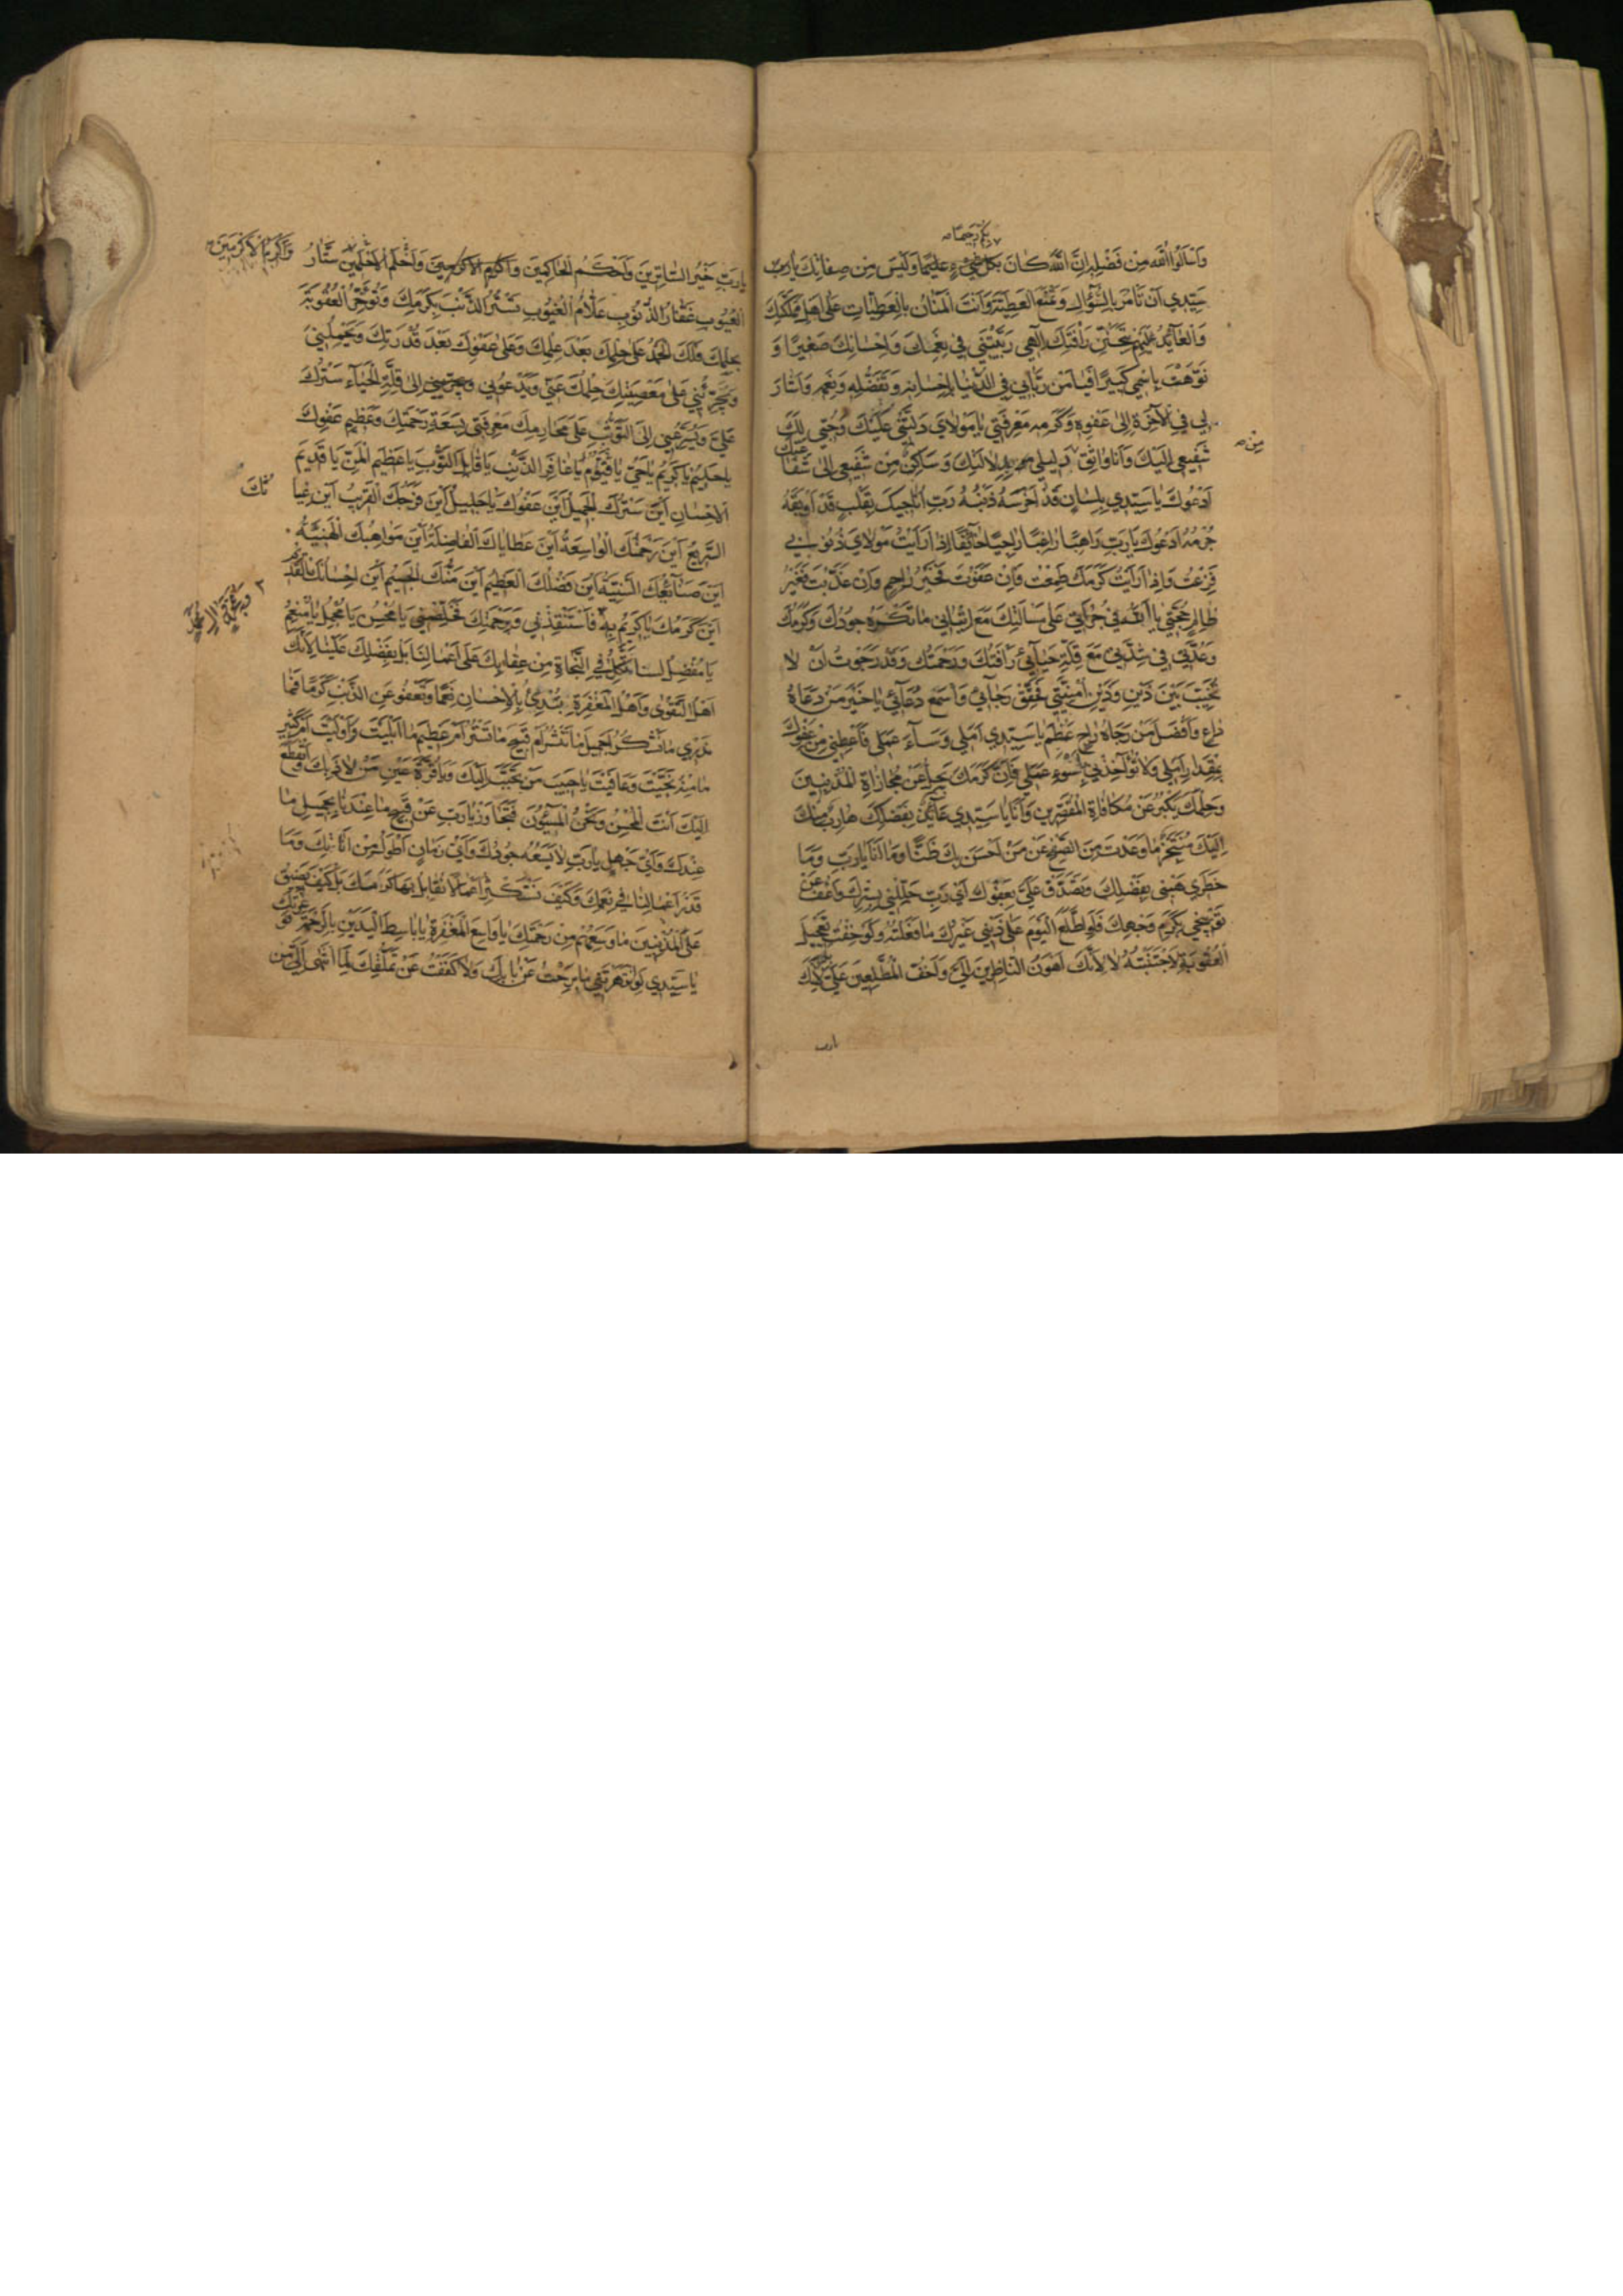 بكم رحيما
وَاسْأَلُوا اللّٰهَ مِنْ فَضْلِهِ اِنَّ اللّٰهَ كَانَ بِكُلِّ شَيْءٍ عَلِيمًا وَلَيْسَ مِنْ صِفَاتِكَ يا
سَيِّدِي اَنْ تَأْمُرَ بِالسُّؤَالِ وَتَمْنَعَ الْعَطِيَّةَ وَاَنْتَ الْمَنَّانُ بِالْعَطِيَّاتِ عَلٰى اَهْلِ مَمْلَكَتِكَ
وَالْعَائِدُ عَلَيْهِمْ بِتَحَنُّنِ رَأْفَتِكَ اِلٰهِي رَبَّيْتَنِي فِي نِعَمِكَ وَاِحْسَانِكَ صَغِيرًا وَ
نَوَّهْتَ بِاسْمِي كَبِيرًا فَيَا مَنْ رَبَّانِي فِي الدُّنْيَا بِاِحْسَانِهِ وَتَفَضُّلِهِ وَنِعَمِهِ وَاَشَارَ
لِي فِي الْآخِرَةِ اِلٰى عَفْوِهِ وَكَرَمِهِ مَعْرِفَتِي يَا مَوْلَايَ دَلَّتْنِي عَلَيْكَ وَحُبِّي لَكَ
شَفِيعِي اِلَيْكَ وَاَنَا وَاثِقٌ مِنْ دَلِيلِي بِدَلَالَتِكَ وَسَاكِنٌ مِنْ شَفِيعِي اِلٰى شَفَا
عتك
اَدْعُوكَ يَا سَيِّدِي بِلِسَانٍ قَدْ اَخْرَسَهُ ذَنْبُهُ رَبِّ اُنَاجِيكَ بِقَلْبٍ قَدْ اَوْبَقَهُ
جُرْمُهُ اَدْعُوكَ يَا رَبِّ رَاهِبًا رَاغِبًا رَاجِيًا خَائِفًا اِذَا رَاَيْتُ مَوْلَايَ ذُنُوبِي
فَزِعْتُ وَاِذَا رَاَيْتُ كَرَمَكَ طَمِعْتُ فَاِنْ عَفَوْتَ فَخَيْرُ رَاحِمٍ وَاِنْ عَذَّبْتَ فَغَيْرُ
ظَالِمٍ حُجَّتِي يَا اَللّٰهُ فِي جُرْاَتِي عَلٰى مَسْاَلَتِكَ مَعَ اِتْيَانِي مَا تَكْرَهُ جُودُكَ وَكَرَمُكَ
وَعُدَّتِي فِي شِدَّتِي مَعَ قِلَّةِ حَيَائِي رَأْفَتُكَ وَرَحْمَتُكَ وَقَدْ رَجَوْتُ اَنْ لَا
تُخَيِّبَ بَيْنَ ذَيْنِ وَذَيْنِ اُمْنِيَّتِي فَحَقِّقْ رَجَائِي وَاسْمَعْ دُعَائِي يَا خَيْرَ مَنْ دَعَاهُ
دَاعٍ وَاَفْضَلَ مَنْ رَجَاهُ رَاجٍ عَظُمَ يَا سَيِّدِي اَمَلِي وَسَاءَ عَمَلِي فَاَعْطِنِي مِنْ عَفْوِكَ
بِمِقْدَارِ اَمَلِي وَلَا تُؤَاخِذْنِي بِاَسْوَءِ عَمَلِي فَاِنَّ كَرَمَكَ يَجِلُّ عَنْ مُجَازَاةِ الْمُذْنِبِينَ
وَحِلْمَكَ يَكْبُرُ عَنْ مُكَافَاةِ الْمُقَصِّرِينَ وَاَنَا يَا سَيِّدِي عَائِذٌ بِفَضْلِكَ هَارِبٌ مِنْكَ
اِلَيْكَ مُتَنَجِّزٌ مَا وَعَدْتَ مِنَ الصَّفْحِ عَنْ مَنْ اَحْسَنَ بِكَ ظَنًّا وَمَا اَنَا يَا رَبِّ وَمَا
خَطَرِي هَبْنِي بِفَضْلِكَ وَتَصَدَّقْ عَلَيَّ بِعَفْوِكَ اَيْ رَبِّ جَلِّلْنِي بِسِتْرِكَ وَاعْفُ عَنْ
تَوْبِيخِي بِكَرَمِ وَجْهِكَ فَلَوِ اطَّلَعَ الْيَوْمَ عَلٰى ذَنْبِي غَيْرُكَ مَا فَعَلْتُهُ وَلَوْ خِفْتُ تَعْجِيلَ
الْعُقُوبَةِ لَاجْتَنَبْتُهُ لَا لِاَنَّكَ اَهْوَنُ النَّاظِرِينَ اِلَيَّ وَاَخَفُّ الْمُطَّلِعِينَ عَلَيَّ بَلْ لِاَنَّكَ
يارب
يَا رَبِّ خَيْرُ السَّاتِرِينَ وَاَحْكَمُ الْحَاكِمِينَ وَاَكْرَمُ الْاَكْرَمِينَ وَاَحْلَمُ الْاَحْلَمِينَ سَتَّارُ وَاَكْرَمُ الْاَكْرَمِينَ
الْعُيُوبِ غَفَّارُ الذُّنُوبِ عَلَّامُ الْغُيُوبِ تَسْتُرُ الذَّنْبَ بِكَرَمِكَ وَتُؤَخِّرُ الْعُقُوبَةَ
بِحِلْمِكَ فَلَكَ الْحَمْدُ عَلٰى حِلْمِكَ بَعْدَ عِلْمِكَ وَعَلٰى عَفْوِكَ بَعْدَ قُدْرَتِكَ وَيَحْمِلُنِي
وَيُجَرِّئُنِي عَلٰى مَعْصِيَتِكَ حِلْمُكَ عَنِّي وَيَدْعُونِي اِلٰى قِلَّةِ الْحَيَاءِ سَتْرُكَ
عَلَيَّ وَيُسْرِعُنِي اِلَى التَّوَثُّبِ عَلٰى مَحَارِمِكَ مَعْرِفَتِي بِسَعَةِ رَحْمَتِكَ وَعَظِيمِ عَفْوِكَ
يَا حَلِيمُ يَا كَرِيمُ يَا حَيُّ يَا قَيُّومُ يَا غَافِرَ الذَّنْبِ يَا قَابِلَ التَّوْبِ يَا عَظِيمَ الْمَنِّ يَا قَدِيمَ
الْاِحْسَانِ اَيْنَ سَتْرُكَ الْجَمِيلُ اَيْنَ عَفْوُكَ الْجَلِيلُ اَيْنَ فَرَجُكَ الْقَرِيبُ اَيْنَ غِيَا ثُكَ
السَّرِيعُ اَيْنَ رَحْمَتُكَ الْوَاسِعَةُ اَيْنَ عَطَايَاكَ الْفَاضِلَةُ اَيْنَ مَوَاهِبُكَ الْهَنِيئَةُ
اَيْنَ صَنَائِعُكَ السَّنِيَّةُ اَيْنَ فَضْلُكَ الْعَظِيمُ اَيْنَ مَنُّكَ الْجَسِيمُ اَيْنَ اِحْسَانُكَ الْقَدِيمُ
اَيْنَ كَرَمُكَ يَا كَرِيمُ بِهِ فَاسْتَنْقِذْنِي وَبِرَحْمَتِكَ فَخَلِّصْنِي يَا مُحْسِنُ يَا مُجْمِلُ يَا مُنْعِمُ
يَا مُفْضِلُ لَسْنَا نَتَّكِلُ فِي النَّجَاةِ مِنْ عِقَابِكَ عَلٰى اَعْمَالِنَا بَلْ بِفَضْلِكَ عَلَيْنَا لِاَنَّكَ
اَهْلُ التَّقْوٰى وَاَهْلُ الْمَغْفِرَةِ تُبْدِئُ بِالْاِحْسَانِ نِعَمًا وَتَعْفُو عَنِ الذَّنْبِ كَرَمًا فَمَا
نَدْرِي مَا نَشْكُرُ اَجَمِيلَ مَا تَنْشُرُ اَمْ قَبِيحَ مَا تَسْتُرُ اَمْ عَظِيمَ مَا اَبْلَيْتَ وَاَوْلَيْتَ اَمْ كَثِيرَ
مَا مِنْهُ نَجَّيْتَ وَعَافَيْتَ يَا حَبِيبَ مَنْ تَحَبَّبَ اِلَيْكَ وَيَا قُرَّةَ عَيْنِ مَنْ لَاذَ بِكَ وَانْقَطَعَ
اِلَيْكَ اَنْتَ الْمُحْسِنُ وَنَحْنُ الْمُسِيئُونَ فَتَجَاوَزْ يَا رَبِّ عَنْ قَبِيحِ مَا عِنْدَنَا بِجَمِيلِ مَا
عِنْدَكَ وَاَيُّ جَهْلٍ يَا رَبِّ لَا يَسَعُهُ جُودُكَ وَاَيُّ زَمَانٍ اَطْوَلُ مِنْ اَنَاتِكَ وَمَا
قَدْرُ اَعْمَالِنَا فِي نِعَمِكَ وَكَيْفَ نَسْتَكْثِرُ اَعْمَالًا نُقَابِلُ بِهَا كَرَمَكَ بَلْ كَيْفَ يَضِيقُ
عَلَى الْمُذْنِبِينَ مَا وَسِعَهُمْ مِنْ رَحْمَتِكَ يَا وَاسِعَ الْمَغْفِرَةِ يَا بَاسِطَ الْيَدَيْنِ بِالرَّحْمَةِ فَوَ عِزَّتِكَ
يَا سَيِّدِي لَوْ نَهَرْتَنِي مَا بَرِحْتُ عَنْ بَابِكَ وَلَا كَفَفْتُ عَنْ تَمَلُّقِكَ لِمَا انْتَهٰى اِلَيَّ مِنَ